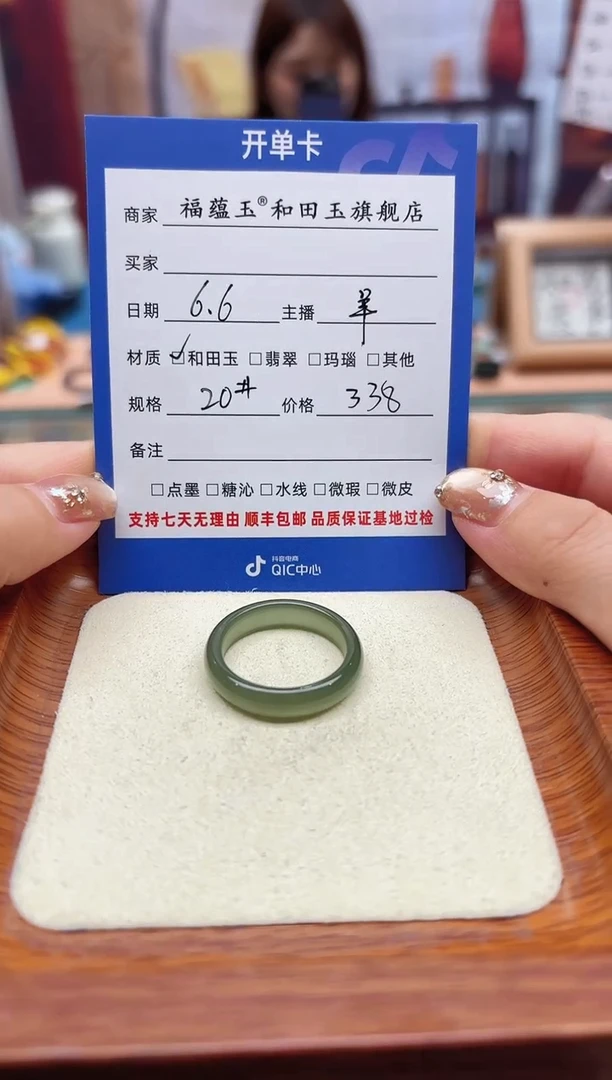 开单卡
商家 福蕴玉®和田玉旗舰店
买家
日期 6.6 主播 羊
材质 ☑和田玉 □翡翠 □玛瑙 □其他
规格 20# 价格 338
备注
□点墨 □糖沁 □水线 □微瑕 □微皮
支持七天无理由 顺丰包邮 品质保证基地过检
抖音电商
QIC中心